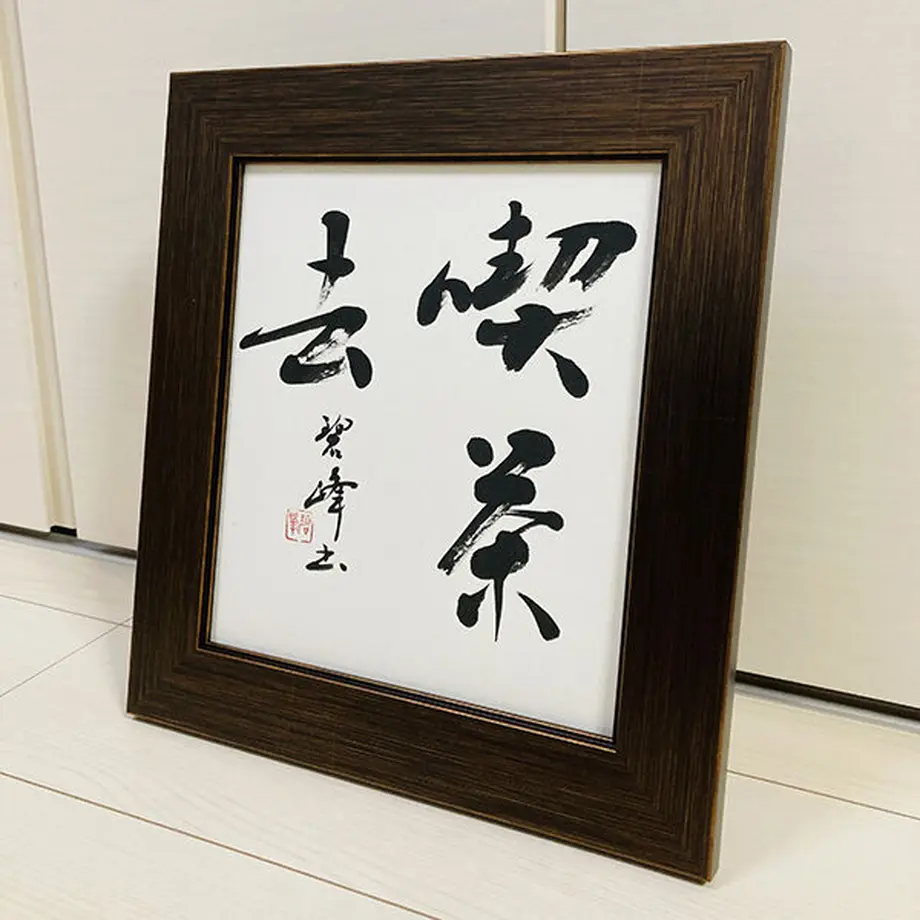 喫茶
去
碧峰書